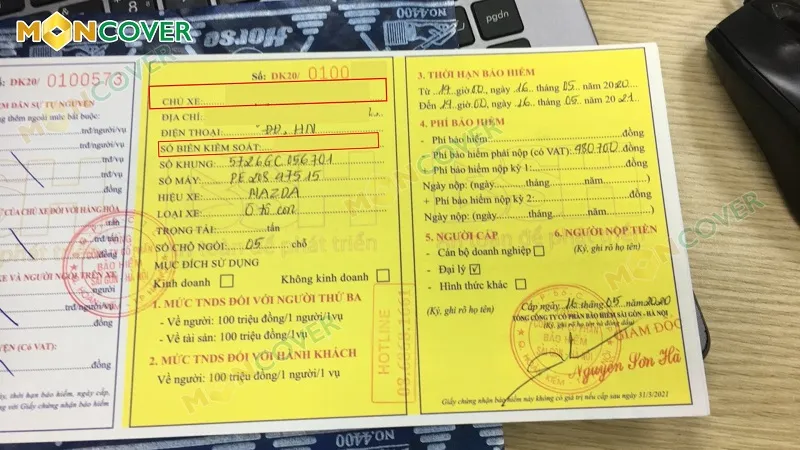 MONCOVER
Horse
NO.4400
pgdn
Số: DK20/ 0100573
trđ/người/vụ
trđ/người/vụ
trđ/vụ
đồng
trđ/vụ
đồng
trđ/người/vụ
đồng
đồng
Số: DK20/ 0100
CHỦ XE:
ĐỊA CHỈ:
ĐIỆN THOẠI: ĐĐ, HN
SỐ BIỂN KIỂM SOÁT:....
SỐ KHUNG: 5726GC 056701
SỐ MÁY: PE 208 47515
HIỆU XE: MAZDA
LOẠI XE: Ô tô con
TRỌNG TẢI: tấn
SỐ CHỖ NGỒI: 05 chỗ
MỤC ĐÍCH SỬ DỤNG
Kinh doanh Không kinh doanh
1. MỨC TNDS ĐỐI VỚI NGƯỜI THỨ BA
- Về người: 100 triệu đồng/1 người/1 vụ
- Về tài sản: 100 triệu đồng/1 vụ
2. MỨC TNDS ĐỐI VỚI HÀNH KHÁCH
Về người: 100 triệu đồng/1 người/1 vụ
HOTLINE
08.6868.1661
3. THỜI HẠN BẢO HIỂM
Từ 19 giờ 00, ngày 16 tháng 05 năm 2020
Đến 19 giờ 00, ngày 16 tháng 05 năm 2021
4. PHÍ BẢO HIỂM
- Phí bảo hiểm: đồng
- Phí bảo hiểm phải nộp (có VAT): 480700 đồng
+ Phí bảo hiểm nộp kỳ 1: đồng
Ngày nộp: (ngày tháng năm )
+ Phí bảo hiểm nộp kỳ 2: đồng
Ngày nộp: (ngày tháng năm )
5. NGƯỜI CẤP 6. NGƯỜI NỘP TIỀN
- Cán bộ doanh nghiệp (Ký, ghi rõ họ tên)
- Đại lý
- Hình thức khác
(Ký, ghi rõ họ tên)
Cấp ngày 16 tháng 05 năm 2020
TỔNG CÔNG TY CỔ PHẦN BẢO HIỂM SÀI GÒN - HÀ NỘI
(Ký, ghi rõ họ tên và đóng dấu)
GIÁM ĐỐC
Nguyễn Sơn Hà
Giấy chứng nhận bảo hiểm này không có giá trị nếu cấp sau ngày 31/3/2021
NO.4400
MONCOVER